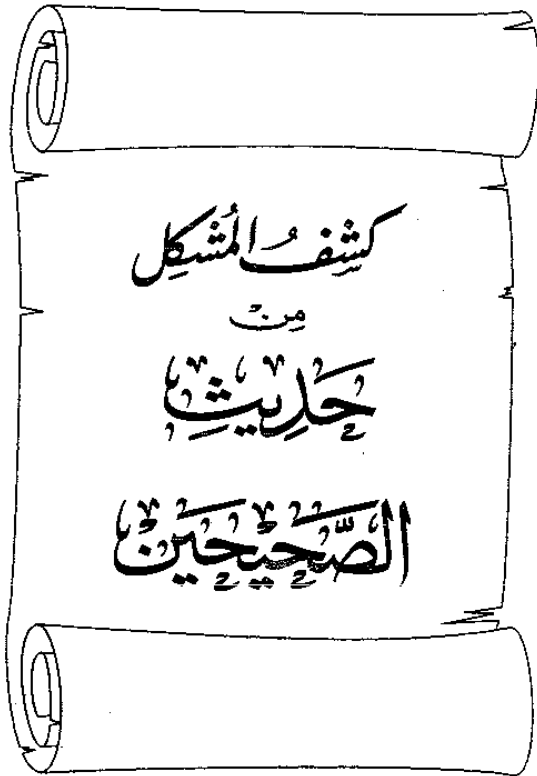 كشْفُ المُشْكِل
مِنْ
حَدِيثِ
الصَّحِيحَينْ